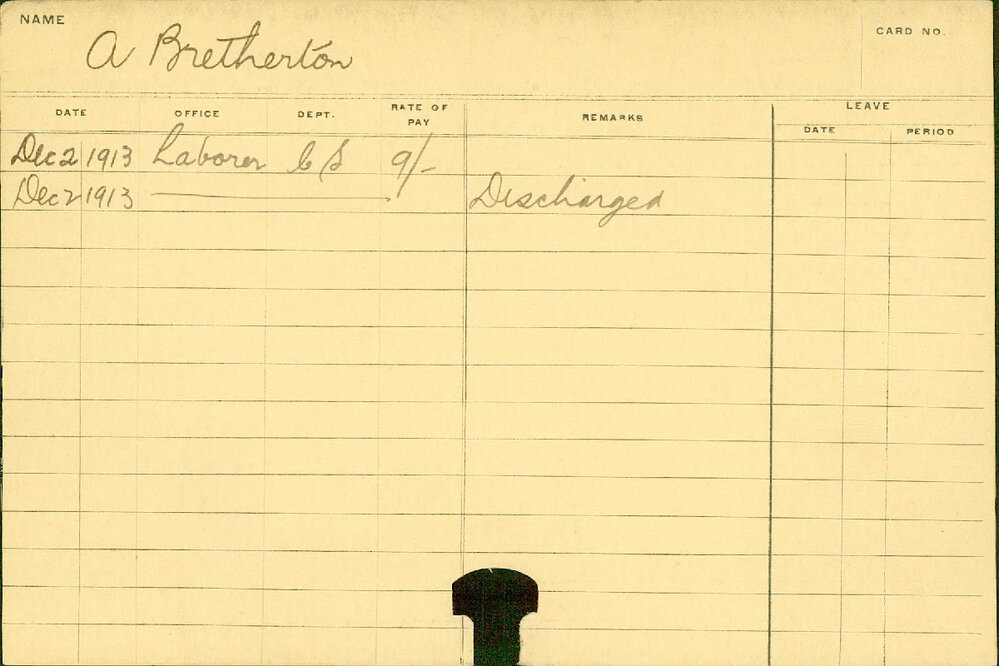 NAME
A Bretherton
CARD NO.
DATE OFFICE DEPT. RATE OF PAY REMARKS LEAVE
DATE PERIOD
Dec 2 1913 Laborer C S 9/-
Dec 2 1913 Discharged